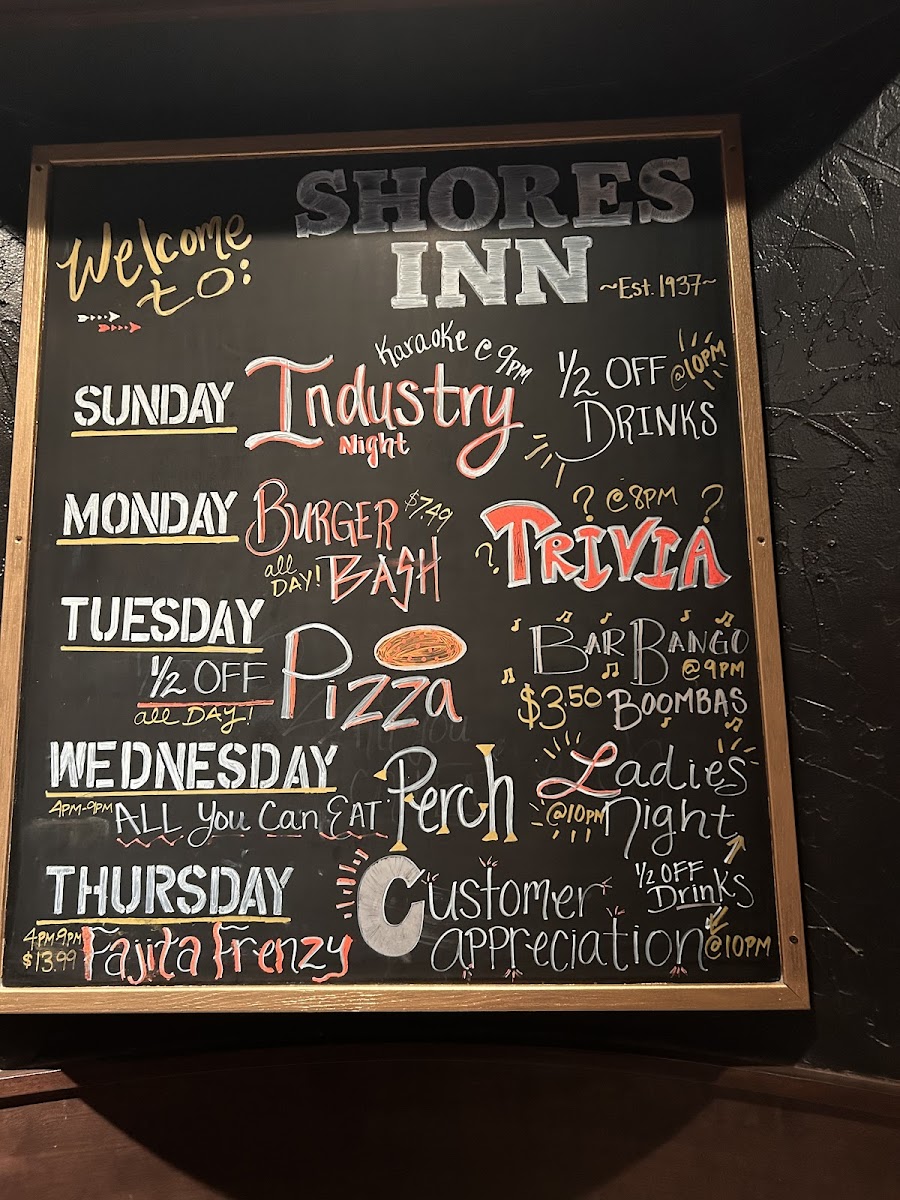 Welcome to:
SHORES
INN
~Est. 1937~
SUNDAY
Industry
Night
Karaoke @ 9pm
1/2 OFF
DRINKS
@10PM
MONDAY
BURGER
BASH
$7.49
all DAY!
? @8PM ?
? TRIVIA
TUESDAY
1/2 OFF
all DAY!
Pizza
BAR BANGO
@9PM
$3.50 BOOMBAS
WEDNESDAY
4PM-9PM
ALL You Can EAT
Perch
Ladies
@10PM Night
1/2 OFF
Drinks
THURSDAY
4PM-9PM
$13.99
Fajita Frenzy
Customer
appreciation
@10PM